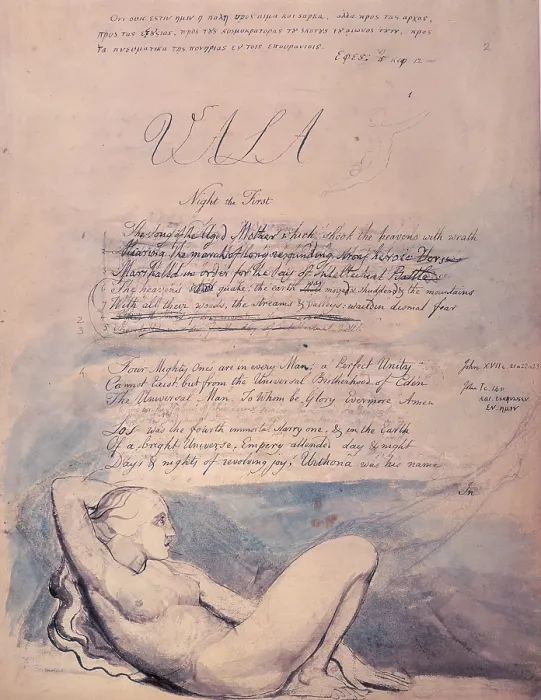 Οτι ουκ εστιν ημιν η παλη προς αιμα και σαρκα, αλλα προς τας αρχας,
προς τας εξȣσιας, προς τȣς κοσμοκρατορας τȣ σκοτȣς τȣ αιωνος τȣτȣ, προς
τα πνευματικα της πονηριας εν τοις επουρανιοις.
Εφες: κεφ 12
2
1
VALA
Night the First
1 The Song of the Aged Mother which shook the heavens with wrath
Hearing the march of long resounding strong heroic Verse
Marshalld in order for the day of Intellectual Battle
6 The heavens quake: the earth moved & shudderd & the mountains
7 With all their woods, the streams & valleys: waild in dismal fear
4 Four Mighty Ones are in every Man; a Perfect Unity
John XVII c. 21 & 22 & 23
Cannot Exist. but from the Universal Brotherhood of Eden
John I c. 14 v
The Universal Man. To Whom be Glory Evermore Amen
και. εσκηνωσεν
εν. ημιν
Los was the fourth immortal starry one, & in the Earth
Of a bright Universe, Empery attended day & night
Days & nights of revolving joy, Urthona was his name
In